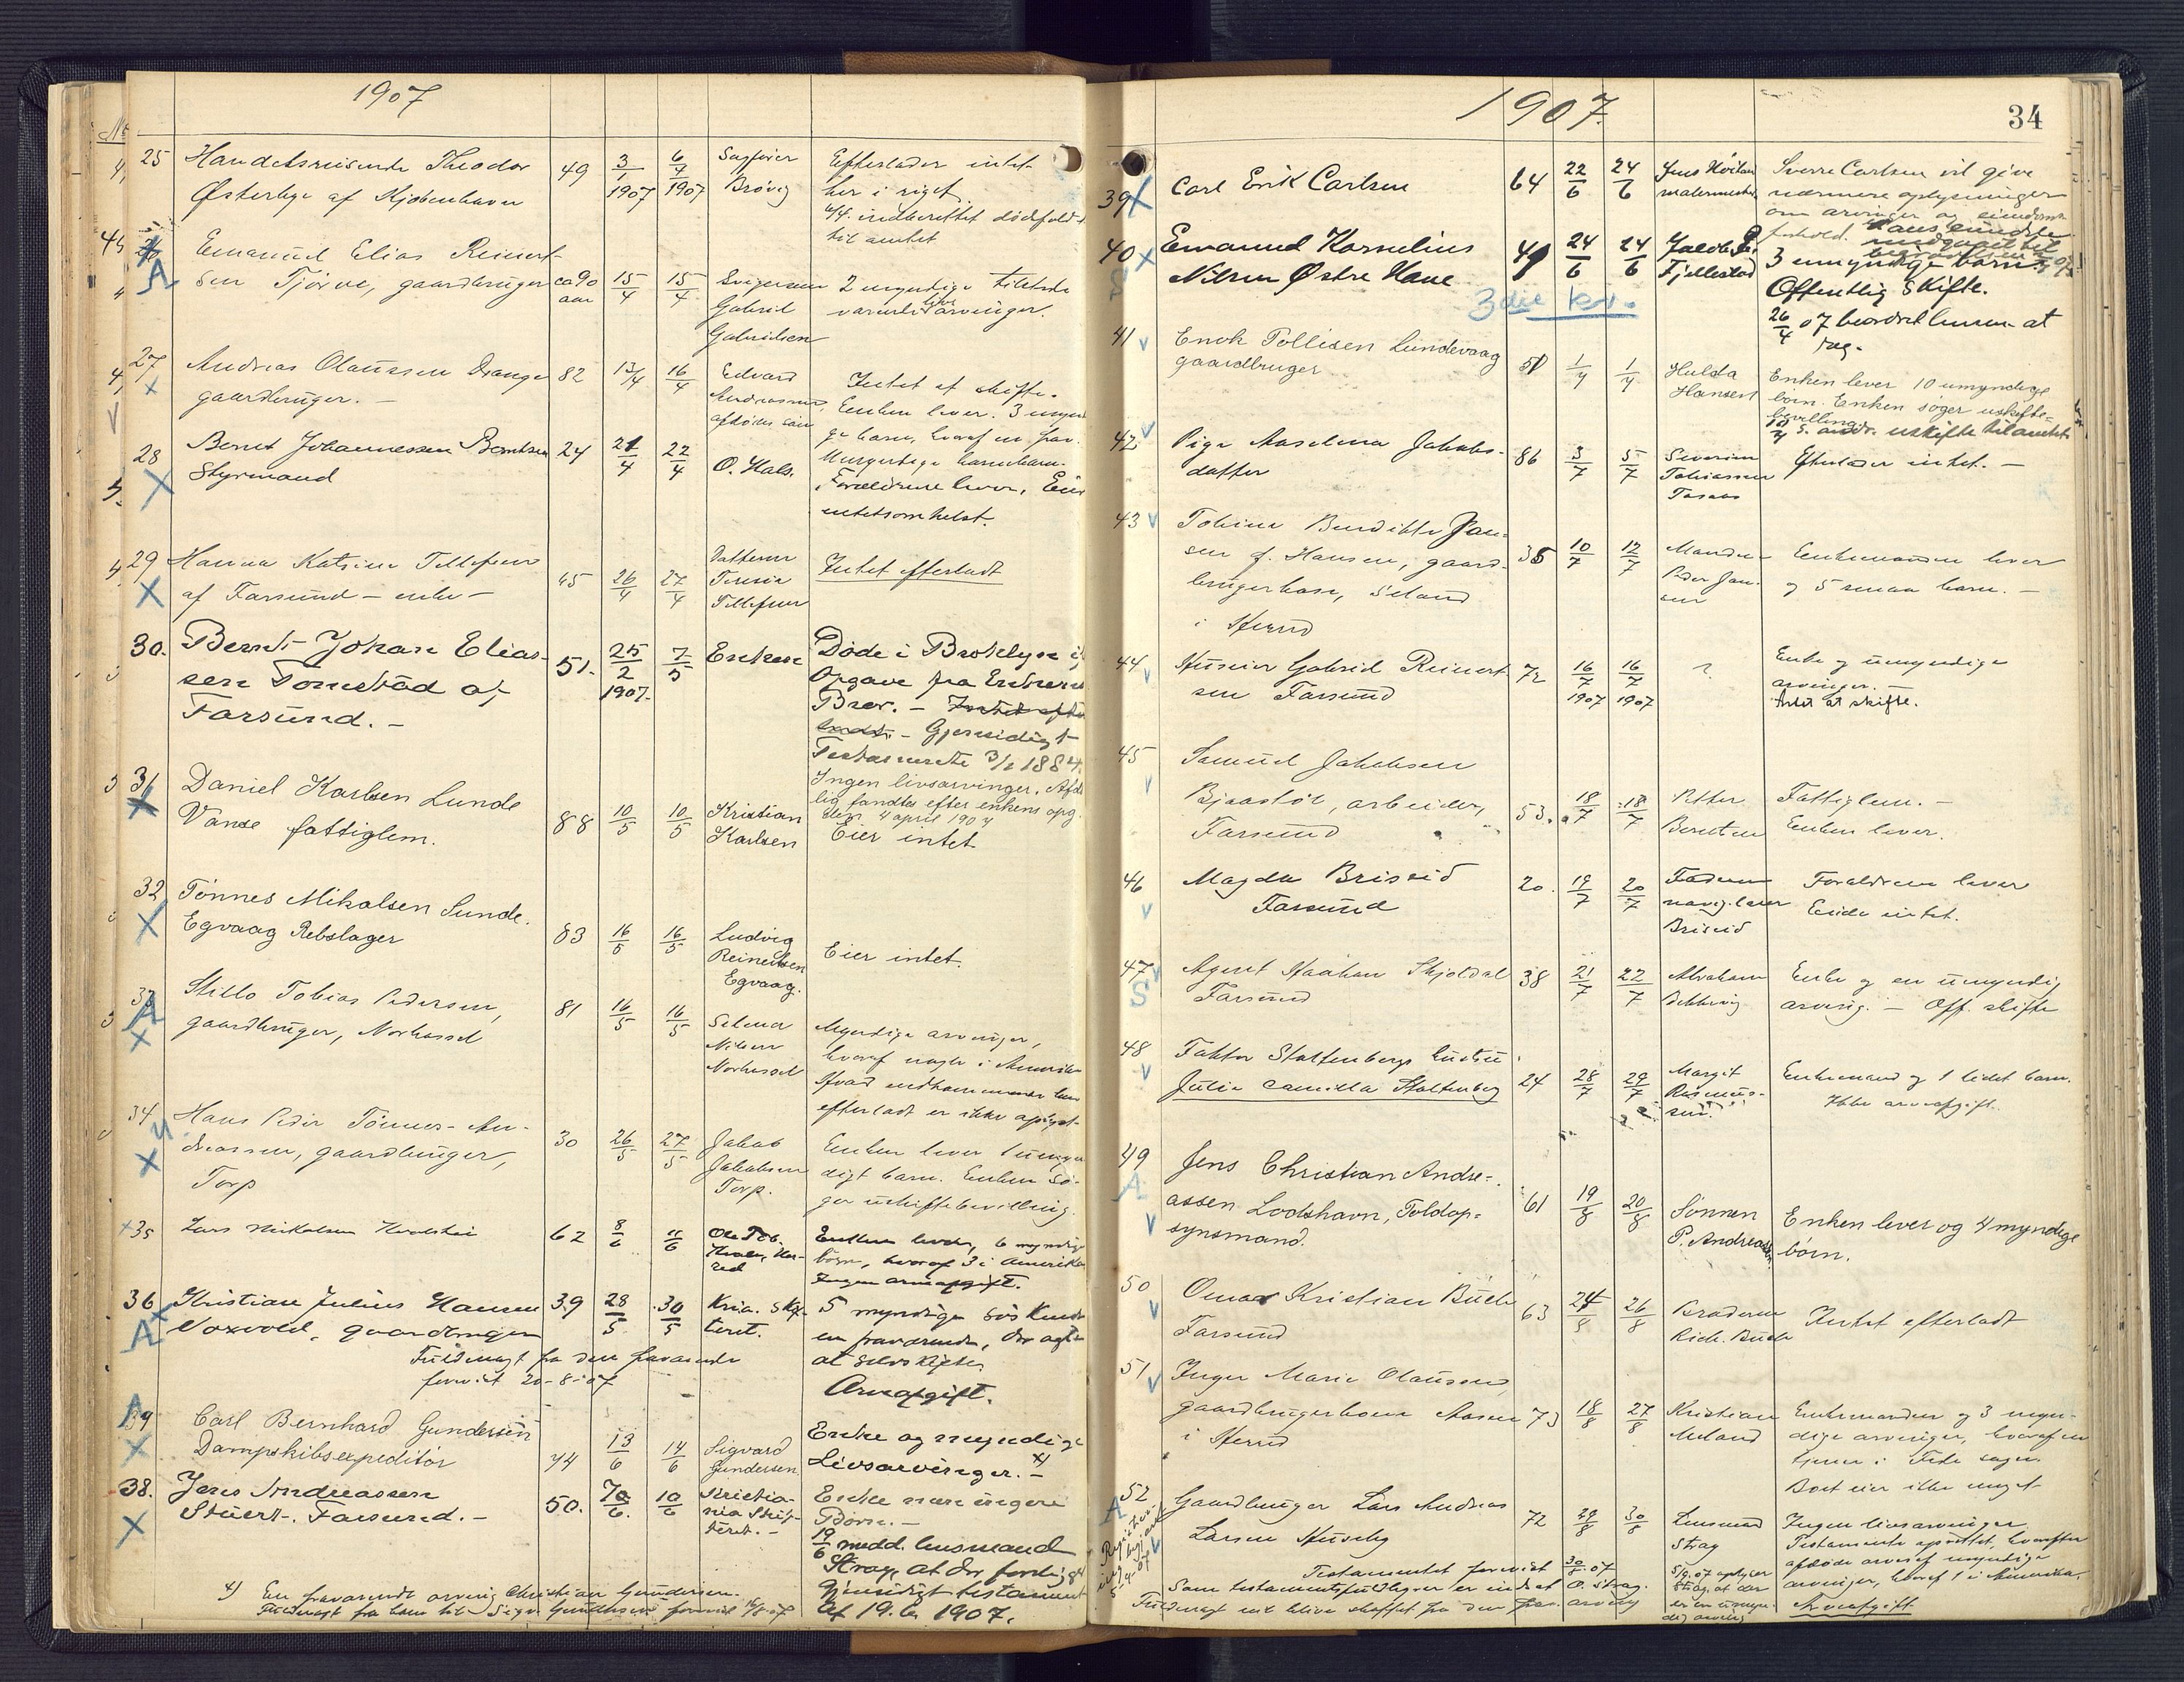 1907
No
25 Handelsreisende Theodor 49 3/1 1907 6/4 1907 Sagfører Brøvig Efterlader intet
Østerbye af Kjøbenhavn her i riget.
6/4 indberettet dødsfaldet
til amtet
26 Emanuel Elias Reinert-
A sen Tjørve, gaardbruger ca 90 aar 15/4 15/4 Svigersøn 2 umyndige tilstede
Gabriel værende livsarvinger.
Gabrielsen
27 Andreas Olaussen Drange 82 13/4 16/4 Edvard Intet at skifte.
gaardbruger. — Andreassen, Enken lever. 3 umyn
afdødes søn ge barn, hvoraf en frav.
28 Bernt Johannessen Berntsen 24 21/4 22/4 O. Hals. Umyndige barnebarn.
Styrmand Forældrene lever. Eier
intetsomhelst.
29 Hanna Katrine Tellefsen 45 26/4 27/4 Datteren Intet efterladt
af Farsund — enke — Tellefsen
30. Bernt Johan Elias- 51. 25/2 1907. 7/5 Enken Døde i Broklyn
sen Tomstad af Opgave fra Enkens
Farsund. — Brev. — Intet efter
ladt. — Gjensidigt
Testamente 3/1 1884.
Ingen livsarvinger.
31 Daniel Karlsen Lunde lig fandtes efter enkens opg.
Vanse fattiglem. 88 10/5 10/5 Kristian 4 april 1907
Karlsen Eier intet
32 Tønnes Mikalsen Lunde.
Egvaag Rebslager 83 16/5 16/5 Ludvig Eier intet.
Reinertsen
Egvaag.
33 Stillo Tobias Pedersen, 81 16/5 16/5 Selmer Myndige arvinger,
A gaardbruger, Norhassel Nilsen hvoraf nogle i Amerika
Norhassel Hvad
efterladt er ikke oplyst.
34 Hans Peder Tønnes An- 30 26/5 27/5 Jakob Enken lever 1 umyn
dreassen, gaardbruger, Jakobsen digt barn. Enken sø-
Torp Torp. ger uskiftebevilling.
35 Lars Mikalsen 62 8/6 11/6 Ole Tob. Enken lever, 6 myndige
børn, hvoraf 3 i Amerika
Ingen arveafgift.
36 Kristian Julius Hansen 39 28/5 30/5 Kria. Skf- 5 myndige søskende
A gaardbruger teret. en fraværende, der agter
Fuldmagt fra den fraværende at selvskifte.
forevist 20-8-07 Arveafgift.
A 37 Carl Bernhard Gundersen Enke og myndige
Dampskibsexpeditør 44 13/6 14/6 Sigvard Livsarvinger. x)
Gundersen
38. Jens Andreassen 50. 7/6. 10/6 Kristia- Enke men ingen
Stuert. Farsund. — nia Skif- Børn. —
teret. — 19/6 medd. lensmand
Strag, at der foreligger
x) En fraværende arving Christian Gundersen. gjensidigt testament
Fuldmagt fra ham til Sigv. Gundersen forevist 16/8 07 af 19.6. 1907.
1907. 34
39 Carl Erik Carlsen 64 22/6 24/6 Jens Sverre Carlsen vil give
malermester nærmere oplysninger
om arvinger og eiendoms
forhold.
40 Emanuel Kornelius 49 24/6 24/6 Jacob P. 3 umyndige børn.
S Nilsen Østre Hane Fjellestad Offentlig Skifte.
3die kv. 26/4 07 beordret lensm. at
reg.
41 Enok Tollisen Lundevaag 51 1/7 1/7 Hulda Enken lever 10 umyndige
gaardbruger Hansen børn. Enken søger uskifte-
bevilling.
uskifte til amtet
42 Pige Anselma Jakobs- 86 3/7 5/7 Severin Efterlader intet. —
datter Tobiassen
43 Tobine Bendikte Jan- 35 10/7 12/7 Manden Enkemanden lever
sen f. Hansen, gaard- Peder Jan- og 5 smaa børn. —
brugerkone, sen
i Herred
44 Huseier Gabriel Reinert 72 16/7 1907 16/7 1907 ? Enke og umyndige
sen Farsund arvinger. —
Intet at skifte.
45 Samuel Jakobsen
Bjaastøl, arbeider, 53. 18/7 18/7 Petter Fattiglem. —
Farsund Berntsen Enken lever.
46 Magda Briseid 20. 19/7 20/7 Faderen Forældrene lever
Farsund navig.lærer Eiede intet.
Briseid
47 Agent Haakon Skjoldal 38 21/7 22/7 Abraham Enke og en umyndig
S Farsund arving. — Off. skifte
48 Faktor Stoltenbergs hustru
Julie Camilla Stoltenberg 24 28/7 29/7 Margit Enkemand og 1 lidet barn.
Rasmus- Ikke arveafgift.
sen.
49 Jens Christian Andre-
A assen Lodshavn, Toldop- 61 19/8 20/8 Sønnen Enken lever og 4 myndige
synsmand. P. Andreassen børn.
50 Omar Kristian Buch 63 24/8 26/8 Broderen Intet efterladt
Farsund Rich. Buch
51 Inger Marie Olaussen,
gaardbrugerkone Aasen 73 18/8 27/8 Kristian Enkemanden og 3 umyn-
i Herred Meland dige arvinger, hvoraf en
tjener i Feda sogn.
Boet eier ikke noget
52 Gaardbruger Lars Andreas
A Larsen Huseby 72 29/8 30/8 Lensmand Ingen livsarvinger.
Strag Testamente oprettet, hvorefter
Testamentet forevist 30/8-07 5/9.07 oplyser afdøde arves af myndige
Som testamentsfuldbyrder er indsat O. Strag. Strag, at der arvinger, hvoraf 1 i Amerika,
Fuldmagt vil blive skaffet fra den frav. arving er en umyn- Arveafgift
dig arving